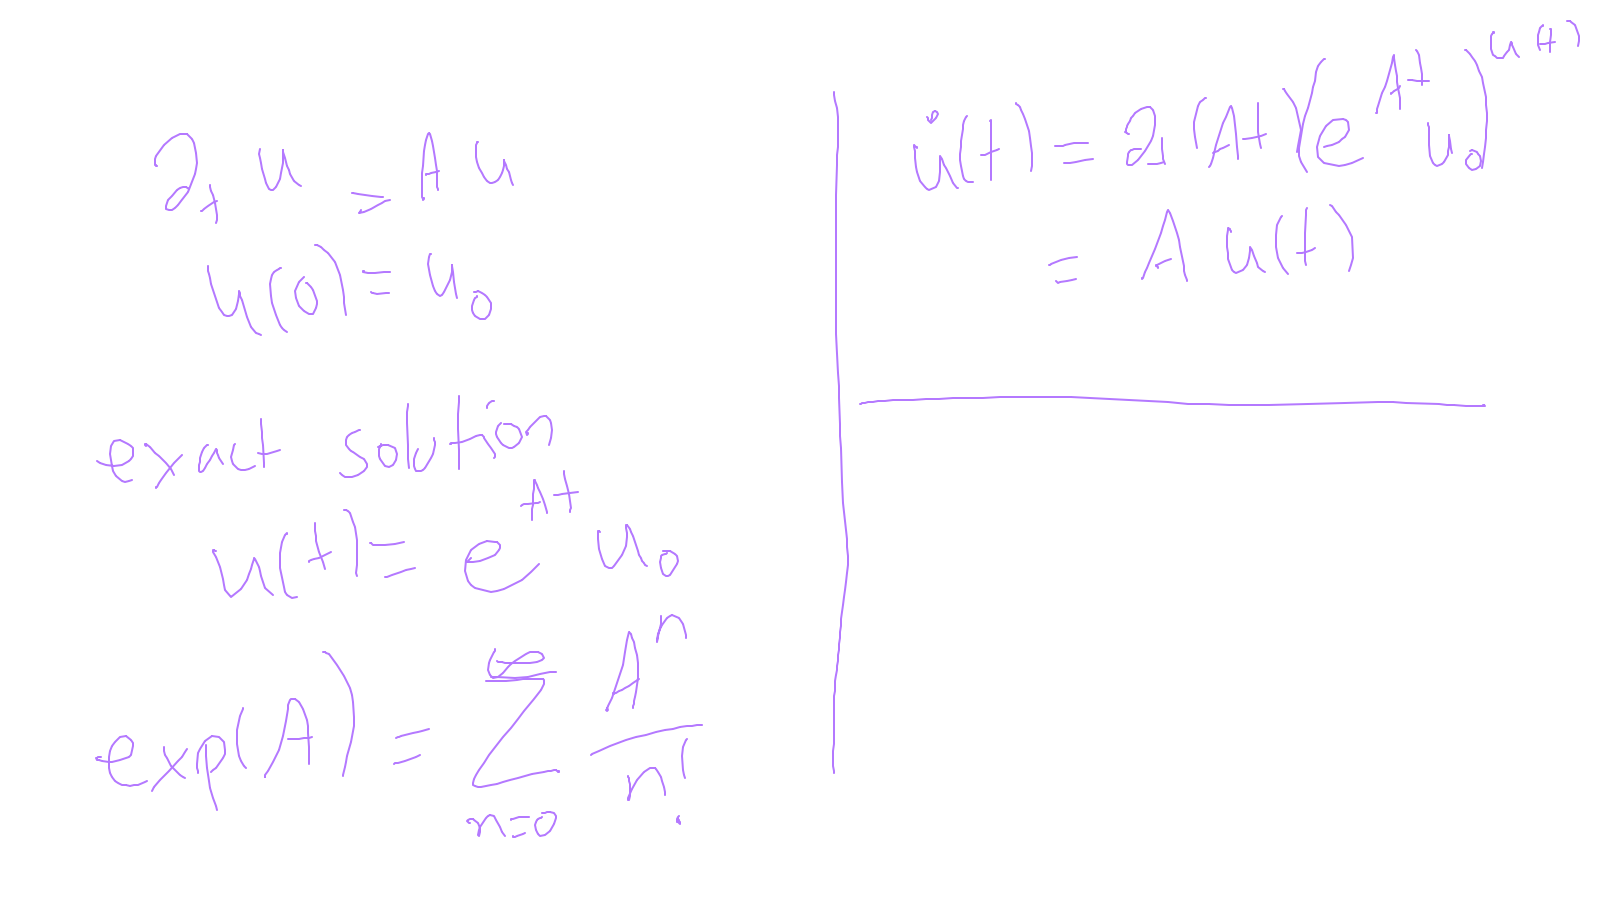 ∂ₜ u = A u
u(0) = u₀
exact solution
u(t) = e^{At} u₀
exp(A) = ∑_{n=0}^{∞} A^n / n!
u̇(t) = ∂ₜ(At)(e^{At} u₀)^{u(t)}
= A u(t)